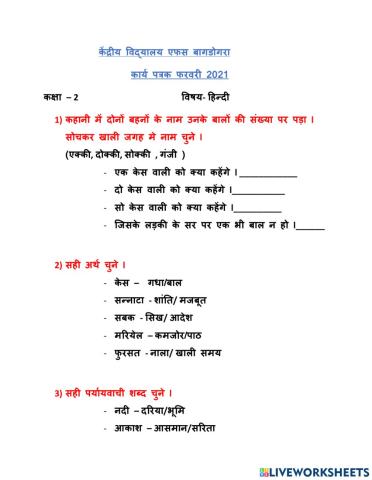 केंद्रीय विद्यालय एफस बागडोगरा
कार्य पत्रक फरवरी 2021
कक्षा – 2 विषय- हिन्दी
1) कहानी में दोनों बहनों के नाम उनके बालों की संख्या पर पड़ा ।
सोचकर खाली जगह मे नाम चुने ।
(एक्की, दोक्की, सोक्की , गंजी )
- एक केस वाली को क्या कहेंगे । ____________
- दो केस वाली को क्या कहेंगे ।___________
- सो केस वाली को क्या कहेंगे ।__________
- जिसके लड़की के सर पर एक भी बाल न हो ।______
2) सही अर्थ चुने ।
- केस – गधा/बाल
- सन्नाटा - शांति/ मजबूत
- सबक - सिख/ आदेश
- मरियेल – कमजोर/पाठ
- फुरसत - नाला/ खाली समय
3) सही पर्यायवाची शब्द चुने ।
- नदी – दरिया/भूमि
- आकाश – आसमान/सरिता
LIVEWORKSHEETS